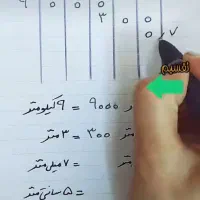 ۹ ۰ ۰ ۰
۳ ۰ ۰
۰٫۷
تقسیم
۹۰۰۰ = ۹ کیلومتر
۳۰۰ = ۳ متر
= ۷ میلی‌متر
= ۵ سانتی‌متر